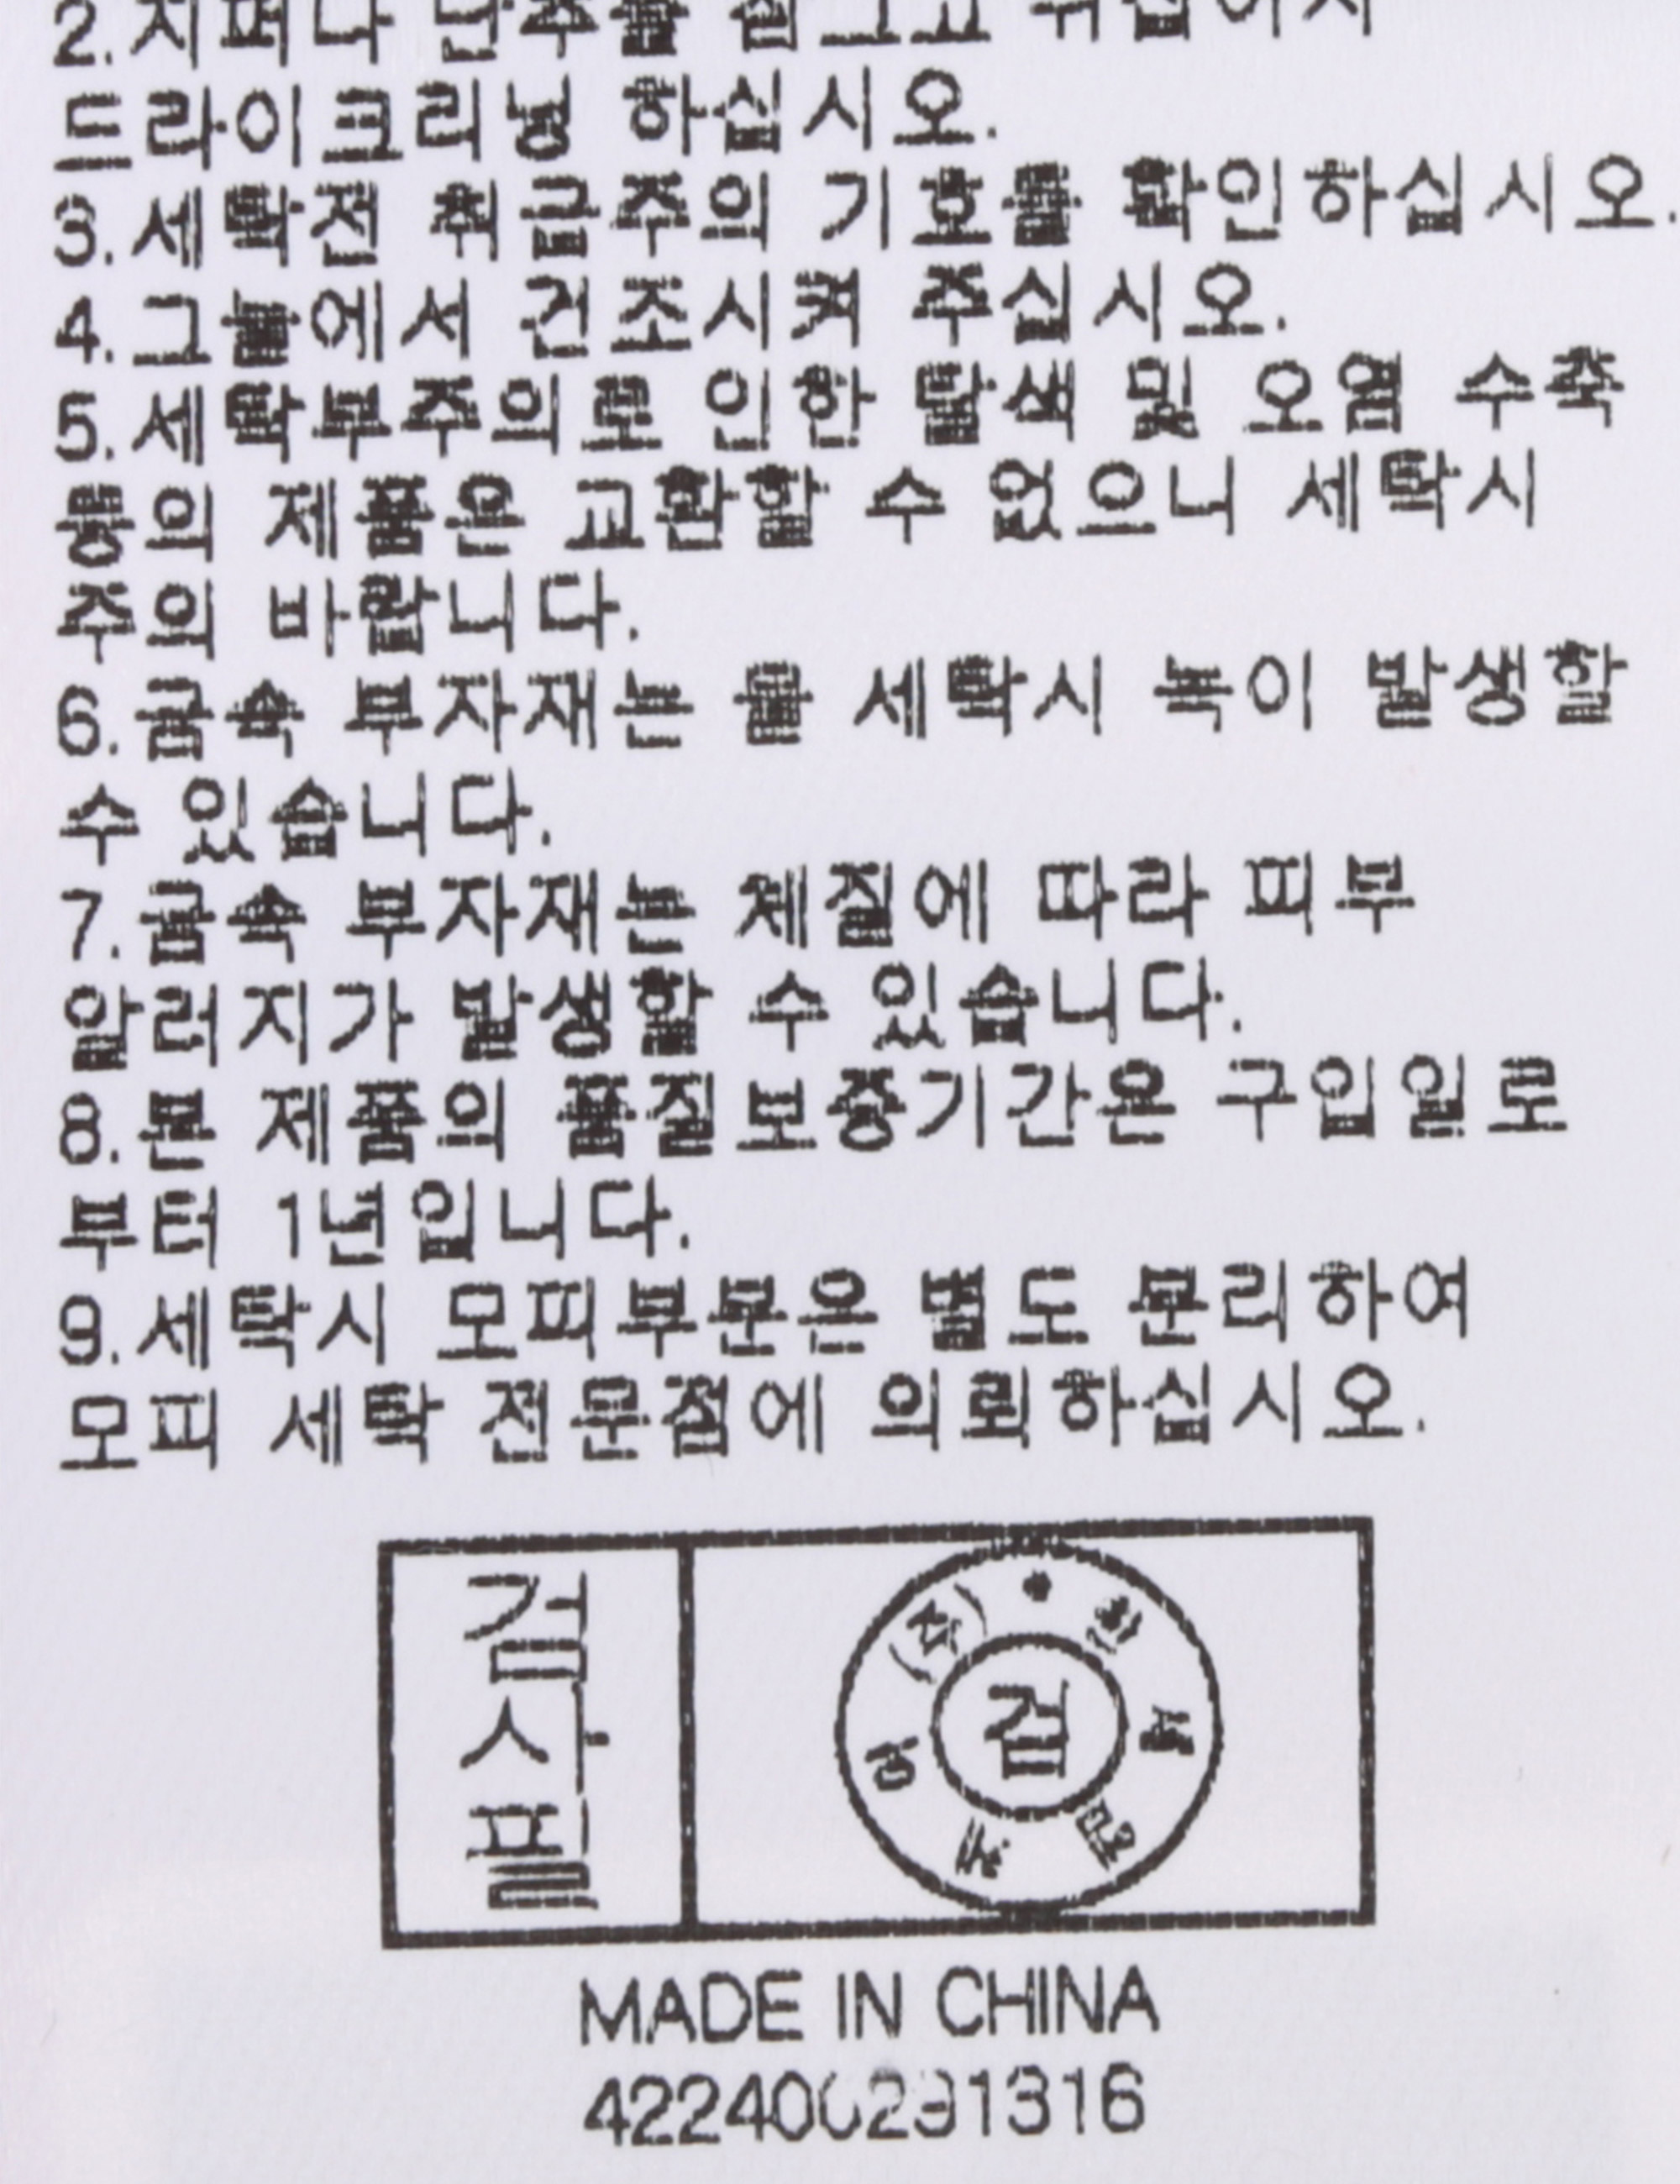 2.지퍼나 단추를 잠그고 뒤집어서
드라이크리닝 하십시오.
3.세탁전 취급주의 기호를 확인하십시오.
4.그늘에서 건조시켜 주십시오.
5.세탁부주의로 인한 탈색 및 오염 수축
등의 제품은 교환할 수 없으니 세탁시
주의 바랍니다.
6.금속 부자재는 물 세탁시 녹이 발생할
수 있습니다.
7.금속 부자재는 체질에 따라 피부
알러지가 발생할 수 있습니다.
8.본 제품의 품질보증기간은 구입일로
부터 1년입니다.
9.세탁시 모피부분은 별도 분리하여
모피 세탁 전문점에 의뢰하십시오.
검사필
검
MADE IN CHINA